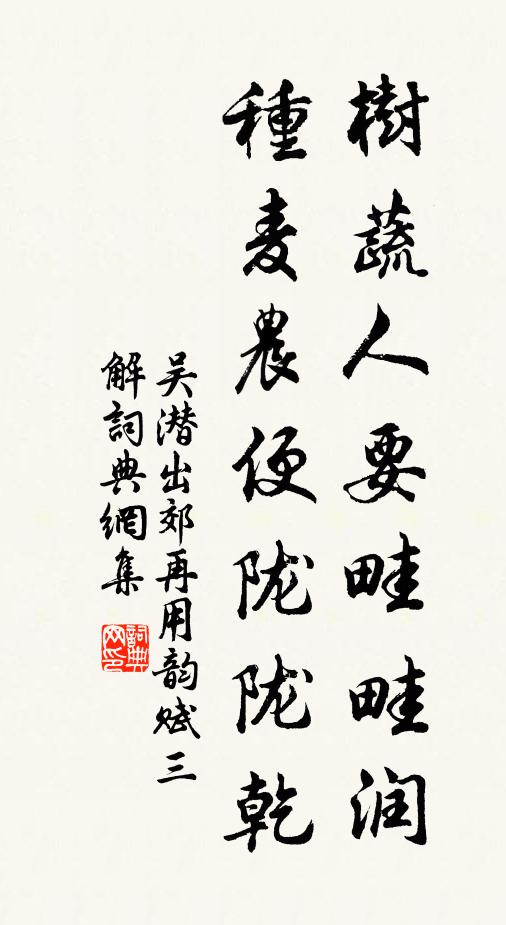 樹蔬人要畦畦润
種麦農便陇陇乾
吴潜出郊再用韵赋三
解詞典網集
詞典
网印